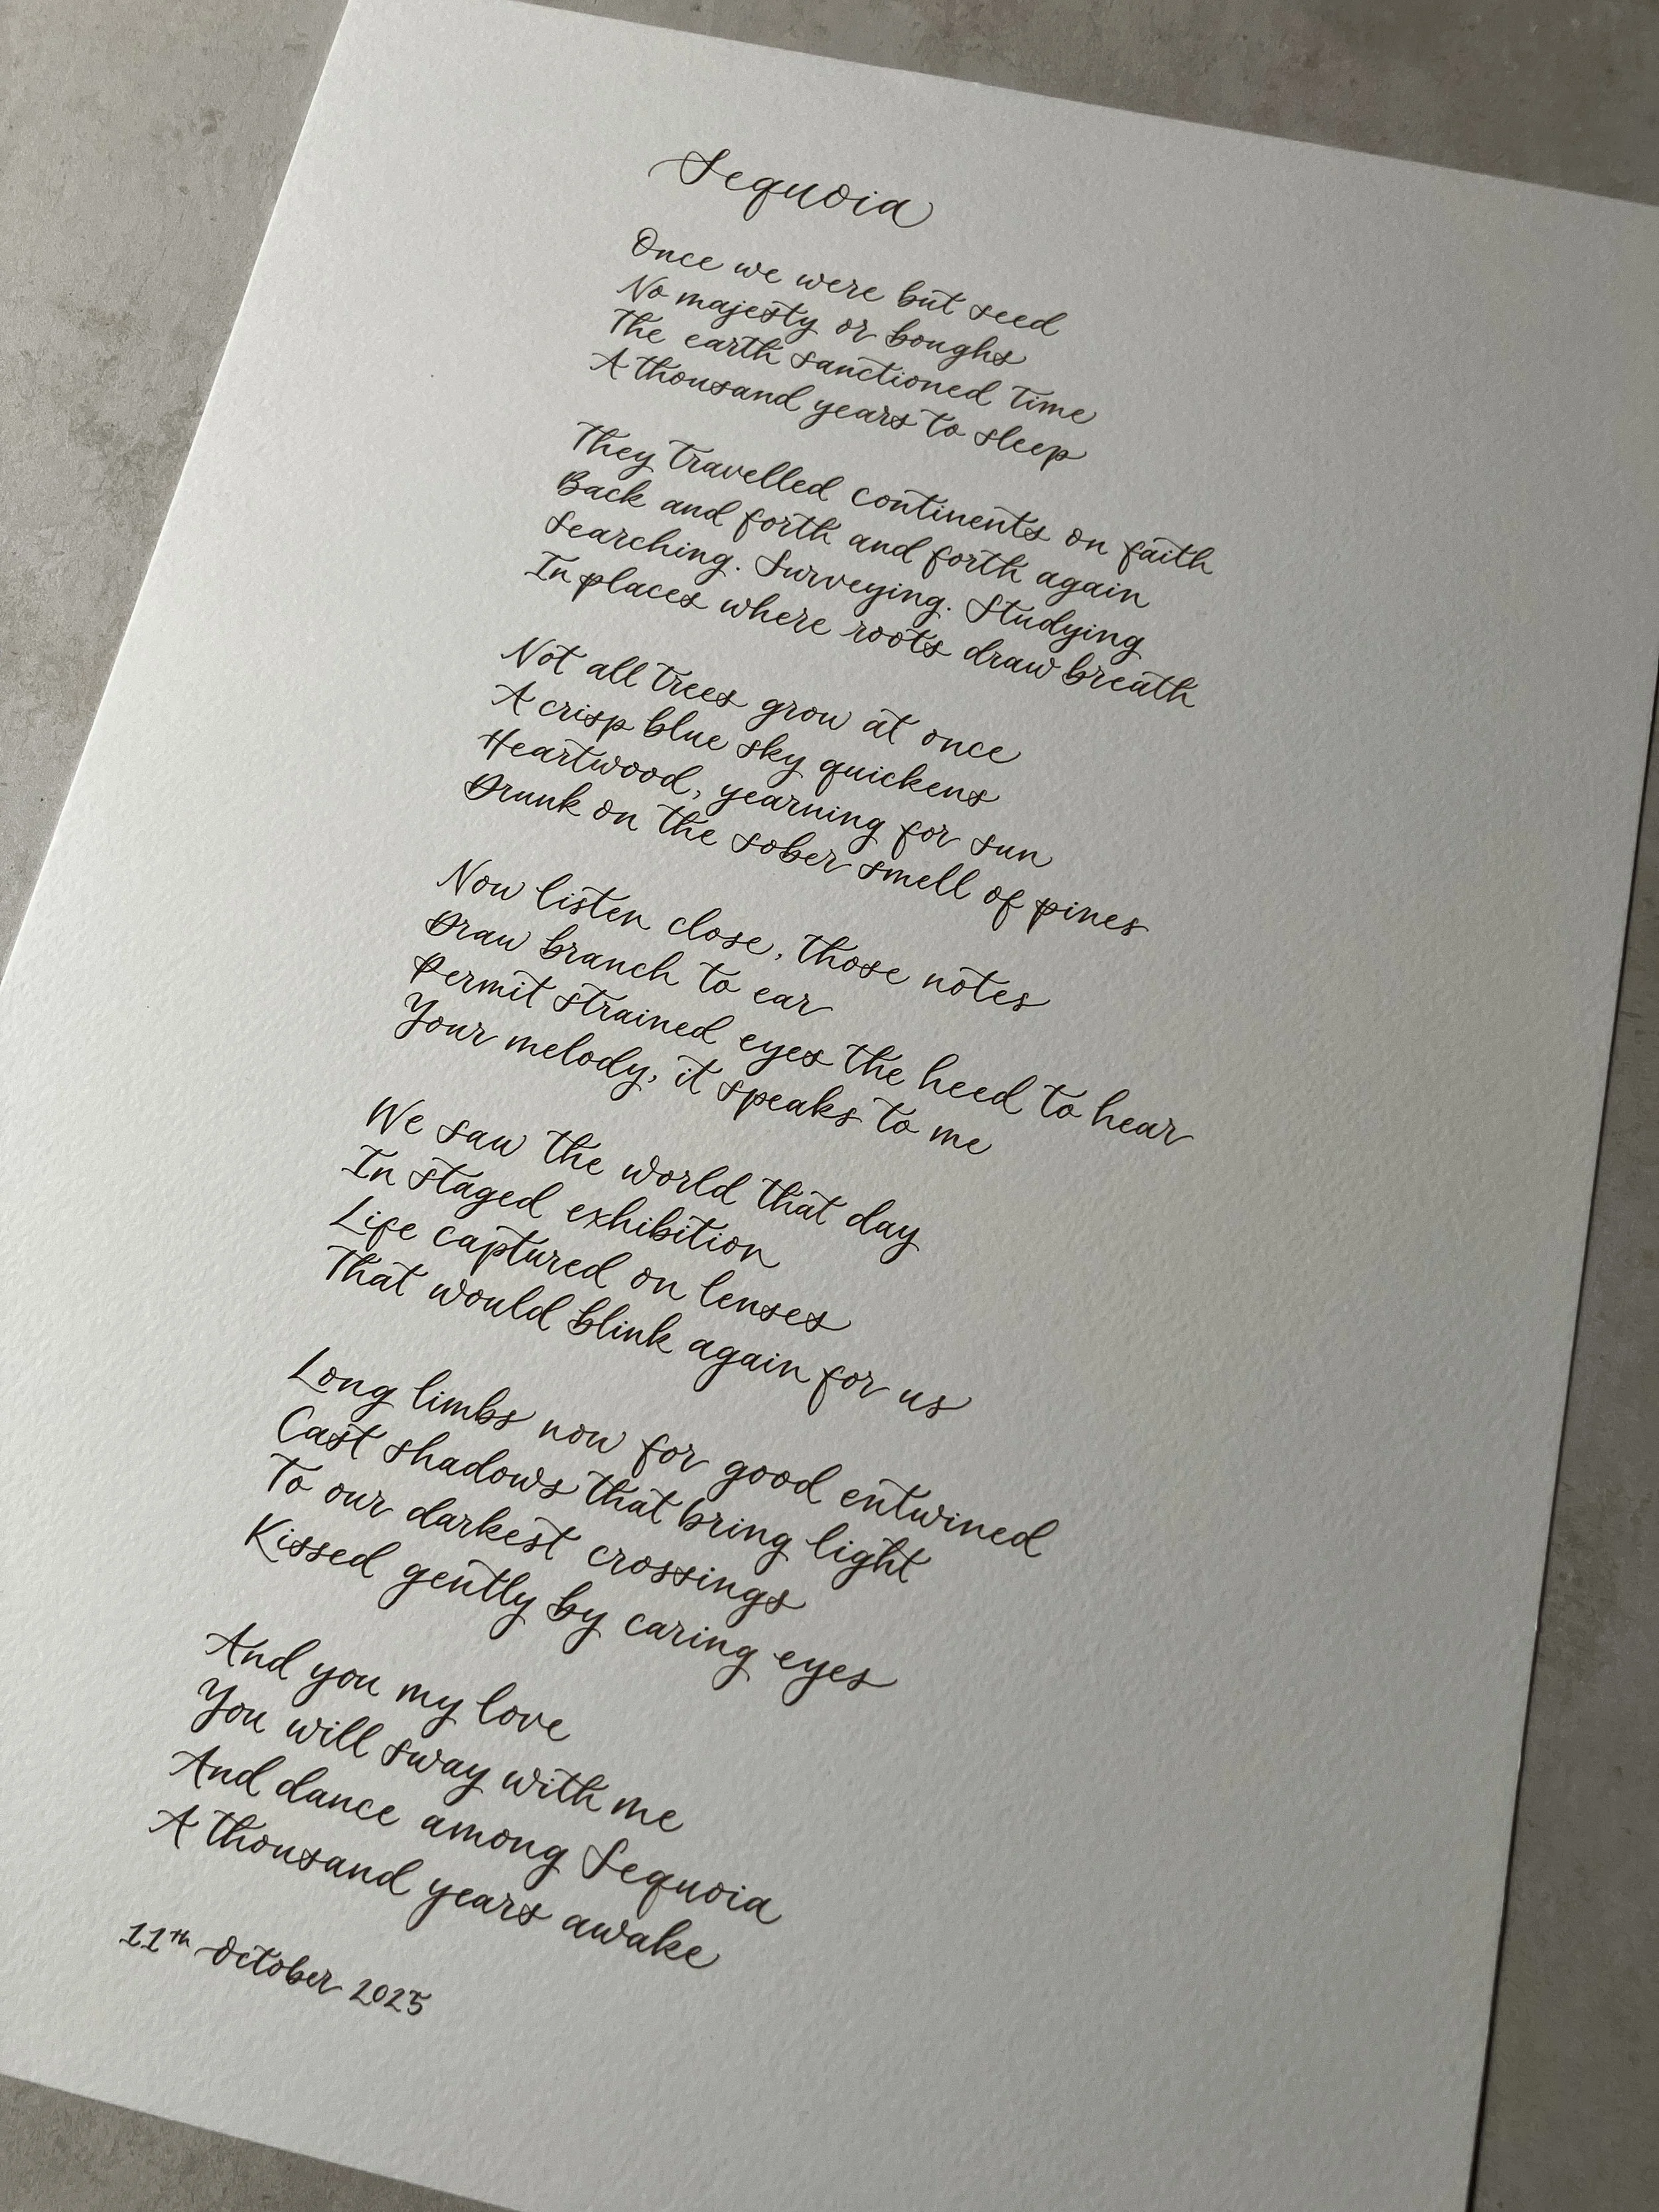 Sequoia
Once we were but seed
No majesty or boughs
The earth sanctioned time
A thousand years to sleep
They travelled continents on faith
Back and forth and forth again
Searching. Surveying. Studying
In places where roots draw breath
Not all trees grow at once
A crisp blue sky quickens
Heartwood, yearning for sun
Drunk on the sober smell of pines
Now listen close, those notes
Draw branch to ear
Permit strained eyes the heed to hear
Your melody, it speaks to me
We saw the world that day
In staged exhibition
Life captured on lenses
That would blink again for us
Long limbs now for good entwined
Cast shadows that bring light
To our darkest crossings
Kissed gently by caring eyes
And you my love
You will sway with me
And dance among Sequoia
A thousand years awake
11th October 2025